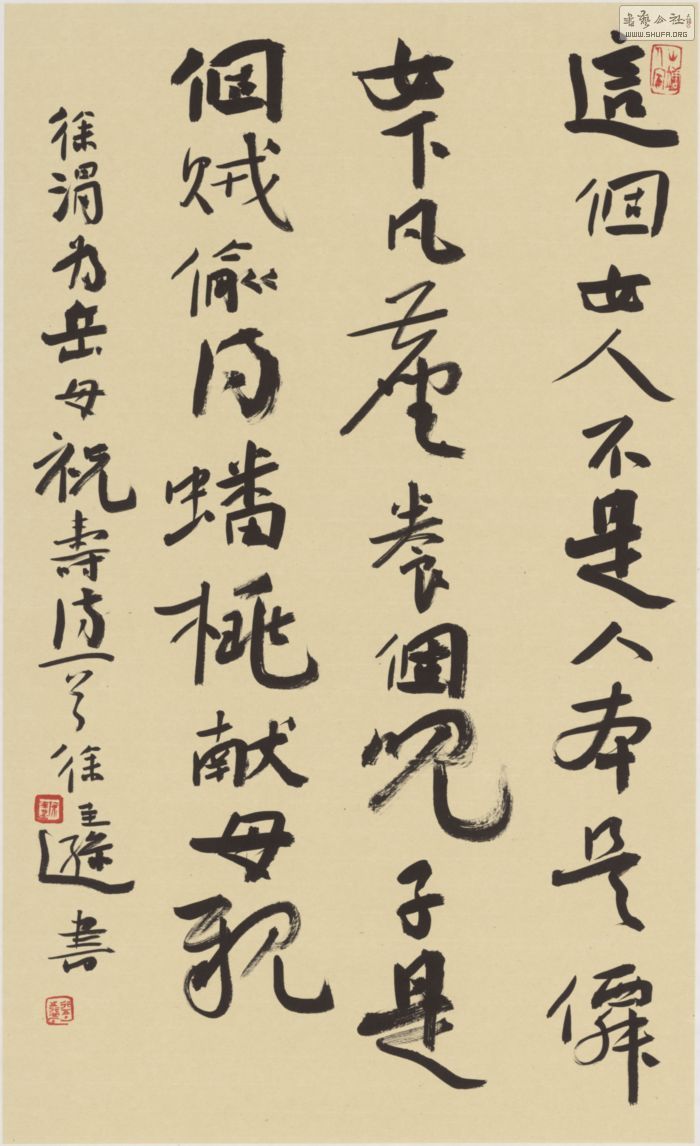 書藝公社
WWW.SHUFA.ORG
這個女人不是人本是僊
女下凡塵養個兒子是
個賊偷得蟠桃献母親
徐渭为岳母祝壽詩一首 徐 遜書